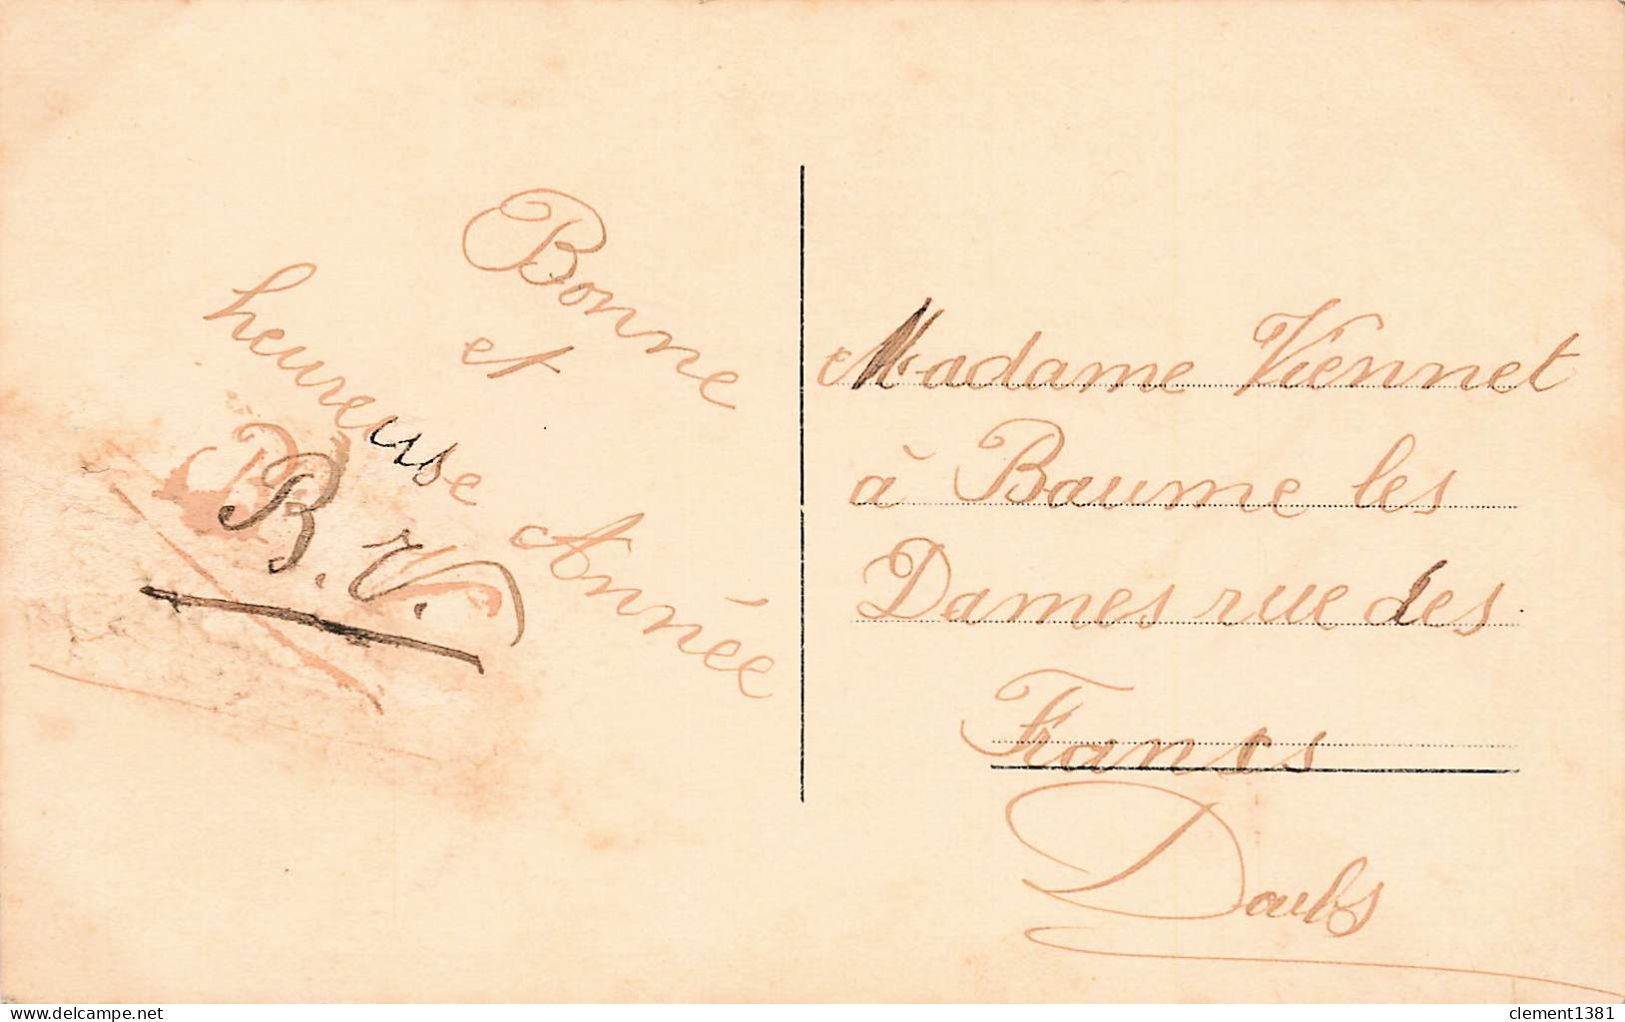 Bonne
et
heureuse Année
B. V.
Madame Viennet
à Baume les
Dames rue des
Francs
Doubs
delcampe.net
clement1381